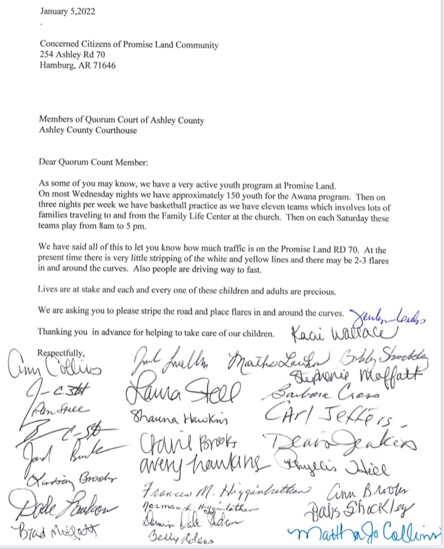 January 5,2022
Concerned Citizens of Promise Land Community
254 Ashley Rd 70
Hamburg, AR 71646
Members of Quorum Court of Ashley County
Ashley County Courthouse
Dear Quorum Count Member:
As some of you may know, we have a very active youth program at Promise Land.
On most Wednesday nights we have approximately 150 youth for the Awana program. Then on
three nights per week we have basketball practice as we have eleven teams which involves lots of
families traveling to and from the Family Life Center at the church. Then on each Saturday these
teams play from 8am to 5 pm.
We have said all of this to let you know how much traffic is on the Promise Land RD 70. At the
present time there is very little stripping of the white and yellow lines and there may be 2-3 flares
in and around the curves. Also people are driving way to fast.
Lives are at stake and each and every one of these children and adults are precious.
We are asking you to please stripe the road and place flares in and around the curves.
Thanking you in advance for helping to take care of our children.
Kaci Wallace
Respectfully,
Ann Collins
Bobby Shockley
Stephanie Moffatt
Laura Steel
Barbara Cross
Shauna Hawkins
Carl Jeffers
Brooks
Avery Hawkins
Phyllis Hill
Frances M. Higginbotham
Ann Brooks
Dale
Norman Higginbotham
Babs Shockley
Brad Moffatt
Betty Adams
Martha Jo Collins